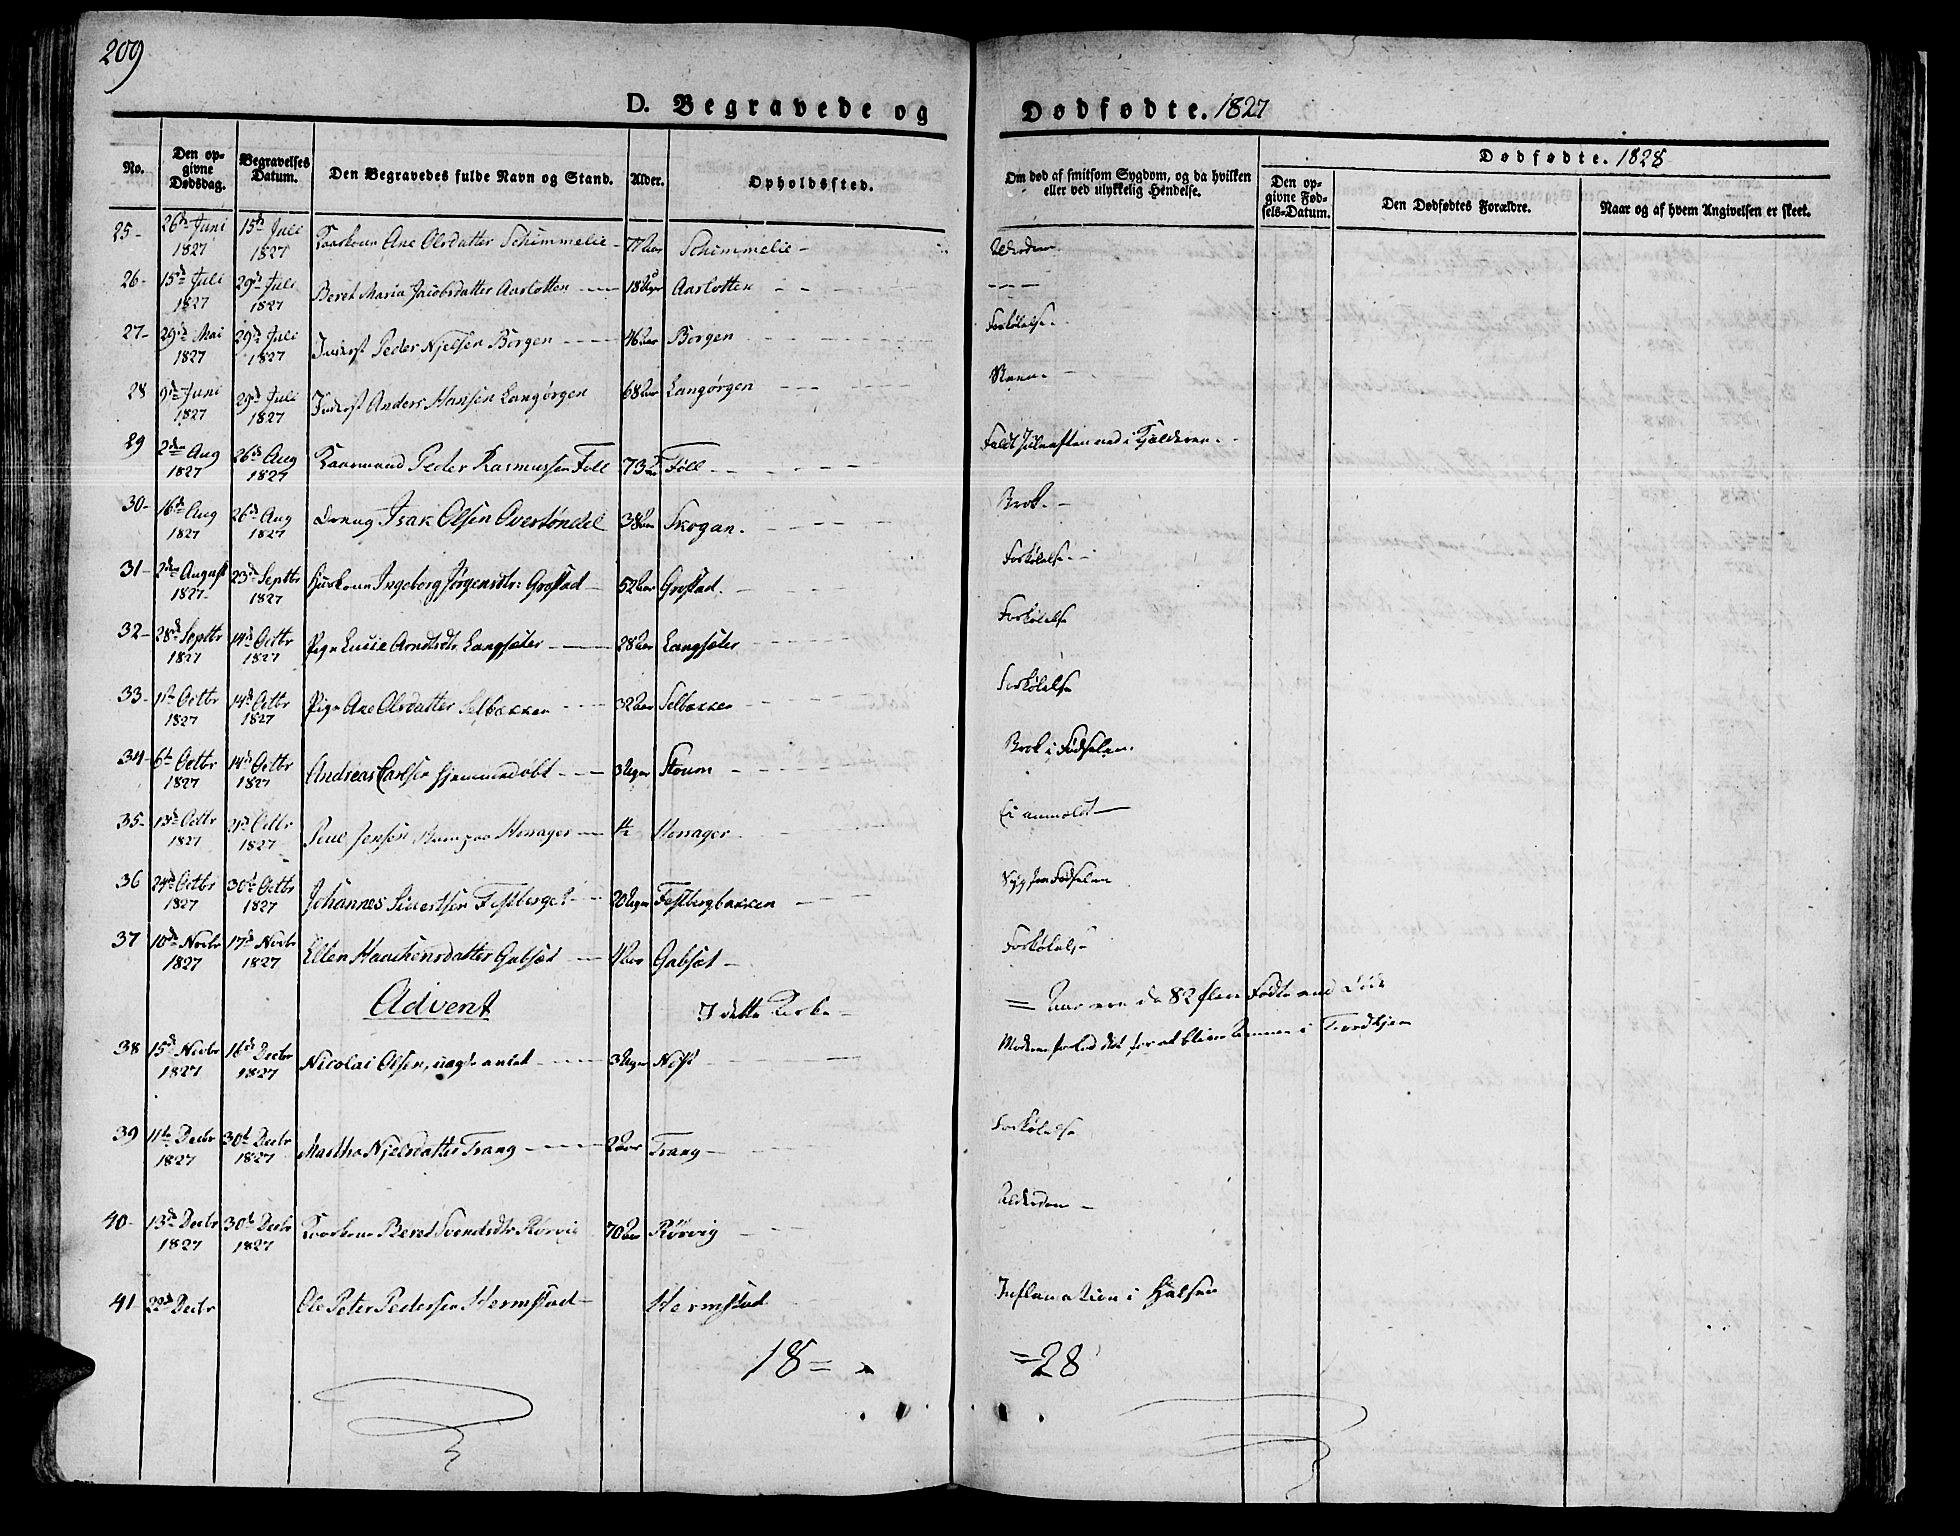 209
D. Begravede og Dødfødte. 1827
No.
Den opgivne Dødsdag.
Begravelses Datum.
Den Begravedes fulde Navn og Stand.
Alder.
Opholdssted.
Om død af smitsom Sygdom, og da hvilken eller ved ulykkelig Hendelse.
Dødfødte. 1828
Den opgivne Fødsels-Datum.
Den Dødfødtes Forældre.
Naar og af hvem Angivelsen er skeet.
25- 26de Juni 1827 15de Juli 1827 Ane Olsdatter Schimmelie 77 Aar Schimmelie Alderdom
26- 15de Juli 1827 29de Juli 1827 Beret Maria Jacobsdatter Aarlotten 18 Uger Aarlotten
27- 29de Mai 1827 29de Juli 1827 Inderst Peder Njelsen Borgen 46 Aar Borgen Forkølelse
28 9de Juni 1827 29de Juli 1827 Inderst Anders Hansen Langørgen 68 Aar Langørgen
29 2den Aug 1827 26de Aug 1827 Kaarmand Peder Rasmussen Foll 73 Føll Faldt Juleaften ned i Kjelderen
30- 16de Aug 1827 26de Aug 1827 Isak Olsen 38 Aar Skogan. Brok
31- 2den August 1827 23de Septbr 1827 Huuskone Ingeborg Jørgensdtr: Grostad 52 Aar Grostad. Forkølelse
32- 28de Septbr 1827 14de Octbr 1827 Pige Lucie Arndtsdtr. Langsæter 28 Aar Langsæter Forkølelse
33- 1ste Octbr 1827 14de Octbr 1827 Pige Ane Olsdatter Selbekken 32 Aar Selbekken Forkølelse
34- 6te Octbr 1827 14de Octbr 1827 Andreas Carlsen hjemmedøbt 3 Uger Brok i Fødselen.
35- 13de Octbr 1827 21de Octbr 1827 Jensen 1/2 Ei anmeldt
36 24de Octbr 1827 30te Octbr 1827 Johannes Siuertsen Festberget 20 Uger Festbergbakken Syg fra Fødselen
37 10de Novbr 1827 17de Novbr 1827 Ellen Haachensdatter Gabsæt 4 Aar Gabsæt Forkølelse
Advent I dette Kirke- = Aar ere da 82 flere Fødte end Døde
38 15de Novbr 1827 16de Decbr 1827 Nicolai Olsen, uægte 3 Uger Moderen forlod det for at blive Amme i Trondhjem
39 11te Decbr 1827 30te Decbr 1827 Martha Njelsdatter Trang 2 Aar Trang Forkølelse
40- 13de Decbr 1827 30te Decbr 1827 Kaarkone Beret Svendsdtr Rørvig 70 Aar Rørvig Alderdom
41 22de Decbr Ole Peter Pedersen Hermstad Hermstad Inflamation i Halsen
18 = = 28